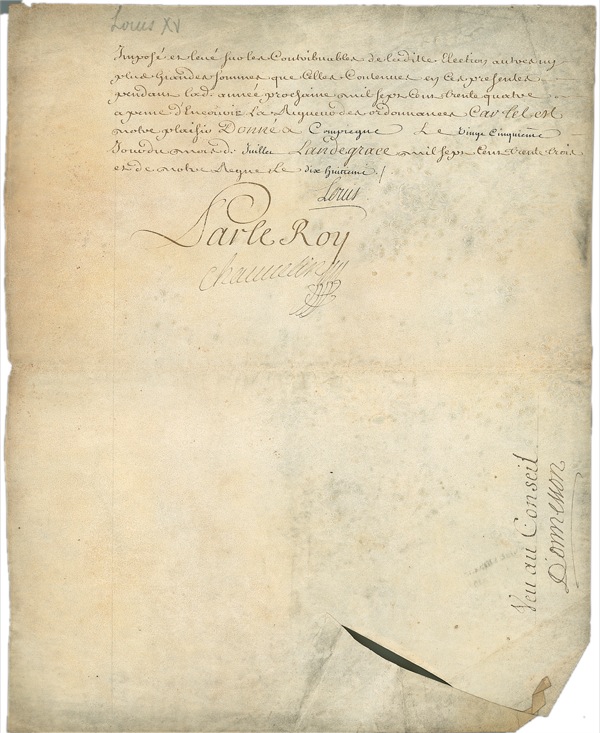 Louis XV
Imposé et levé sur les Contribuables de laditte Election autres ny
plus Grandes sommes que Celles Contenues en Ces presentes
pendant lad. année prochaine mil sept Cent trente quatre
a peine d'Encourir La Rigueur des ordonnances Car tel est
notre plaisir Donné a Compiegne Le Vingt Cinquieme
Jour du mois de Juillet L'an de grace mil sept Cent trente trois
et de notre Regne Le dix huitieme ./.
Louis
Par le Roy
Chauvelin
Veu au Conseil
D'ormesson